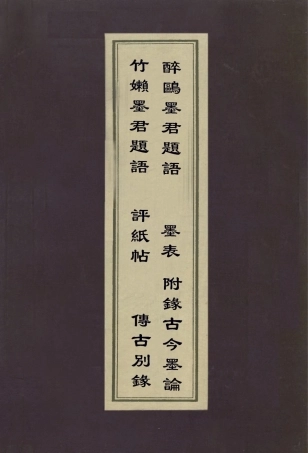 醉鷗墨君題語　墨表　附錄古今墨論
竹嬾墨君題語　評紙帖　傳古別錄